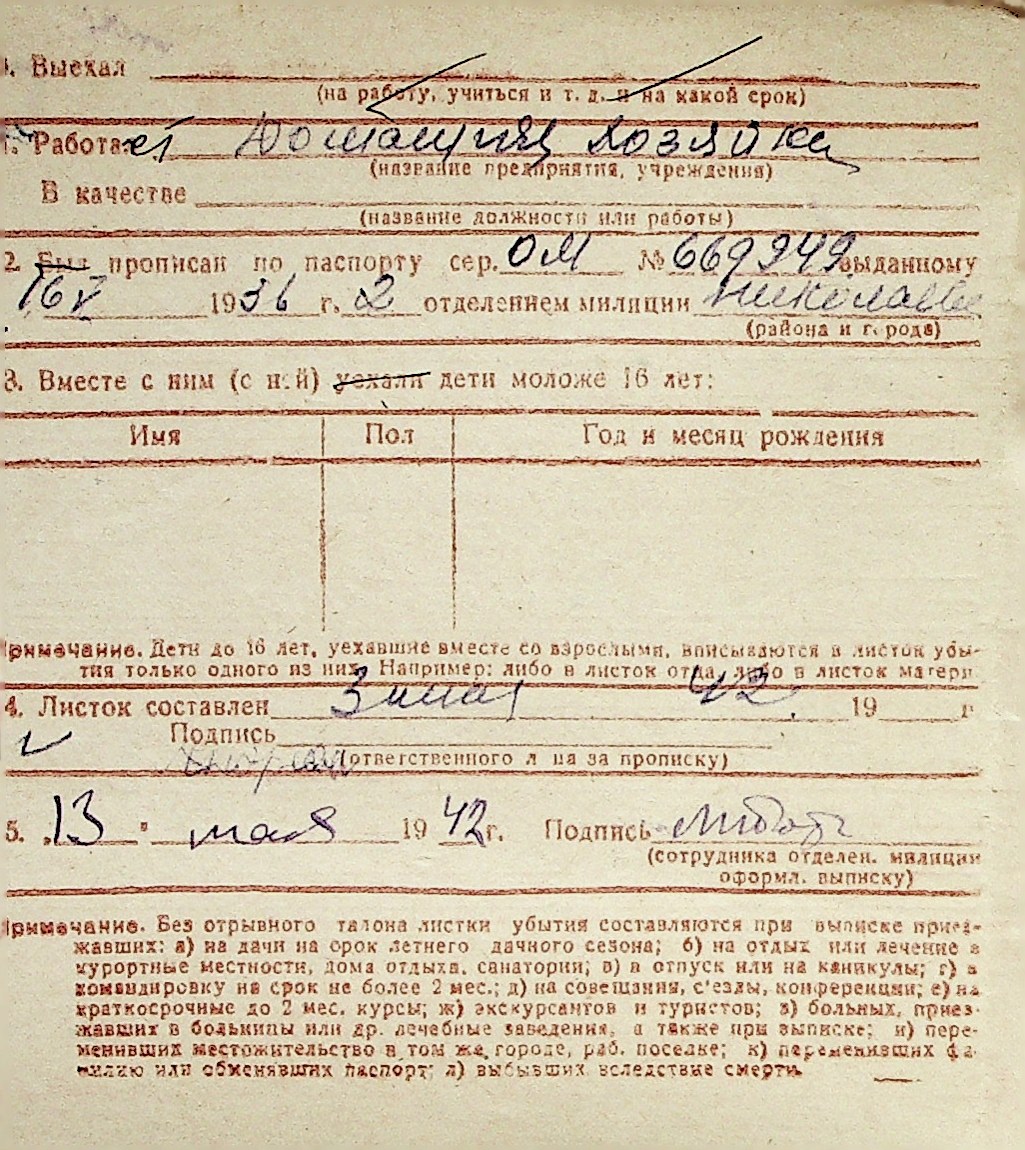 . Выехал
(на работу, учиться и т. д. и на какой срок)
1. Работает Домашняя хозяйка
(название предприятия, учреждения)
В качестве
(название должности или работы)
2. Был прописан по паспорту сер. ОМ № 669949 выданному
16 V 1936 г. 2 отделением милиции
(района и города)
3. Вместе с ним (с ней) уехали дети моложе 16 лет:
Имя Пол Год и месяц рождения
Примечание. Дети до 16 лет, уехавшие вместе со взрослыми, вписываются в листок убы-
тия только одного из них. Например: либо в листок отца, либо в листок матери.
4. Листок составлен 3 мая 42. 19 г
Подпись
(ответственного лица за прописку)
5. 13 " мая 1942 г. Подпись
(сотрудника отделен. милиции
оформл. выписку)
Примечание. Без отрывного талона листки убытия составляются при выписке приез-
жавших: а) на дачи на срок летнего дачного сезона; б) на отдых или лечение в
курортные местности, дома отдыха, санатории; в) в отпуск или на каникулы; г) в
командировку на срок не более 2 мес.; д) на совещания, с'езды, конференции; е) на
краткосрочные до 2 мес. курсы; ж) экскурсантов и туристов; з) больных, приез-
жавших в больницы или др. лечебные заведения, а также при выписке; и) пере-
менивших местожительство в том же городе, раб. поселке; к) переменивших фа-
милию или обменявших паспорт; л) выбывших вследствие смерти.